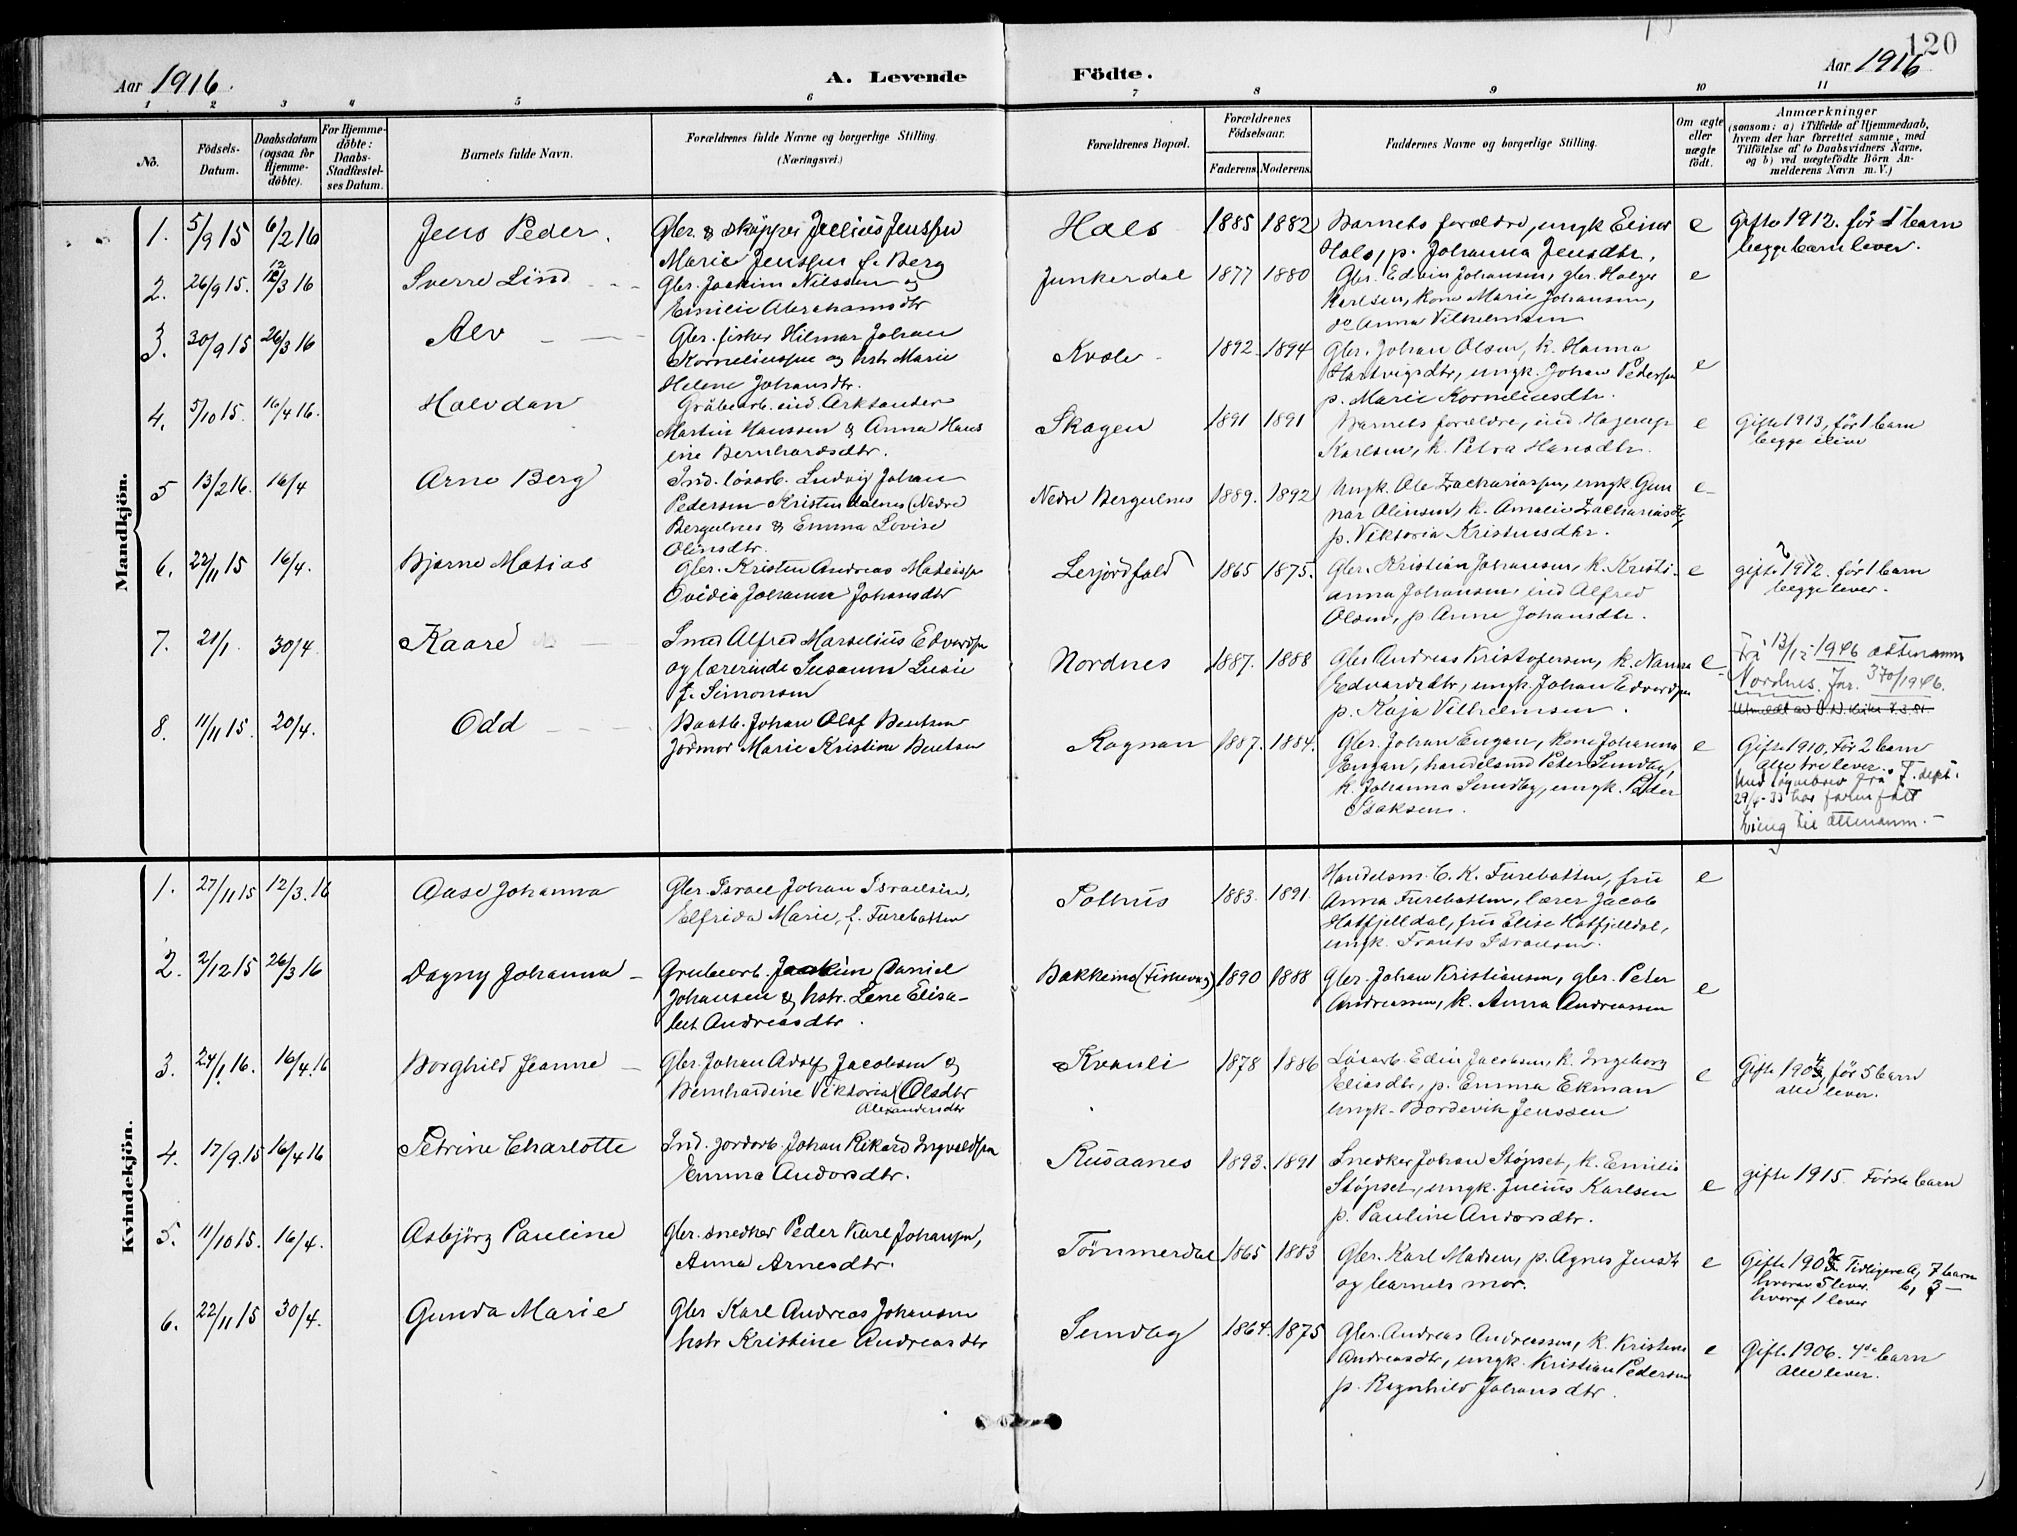 120
Aar 1916. A. Levende Födte. Aar 1916
1 2 3 4 5 6 7 8 9 10 11
No.
Födsels-
Datum.
Daabsdatum
(ogsaa for
Hjemme-
döbte).
For Hjemme-
döbte:
Daabs-
Stadfæstel-
ses Datum.
Barnets fulde Navn.
Forældrenes fulde Navne og borgerlige Stilling.
(Næringsvei.)
Forældrenes Bopæl.
Forældrenes
Födselsaar.
Faderens. Moderens.
Faddernes Navne og borgerlige Stilling.
Om ægte
eller
uægte
födt.
Anmærkninger
(saasom: a) i Tilfælde af Hjemmedaab,
hvem der har forrettet samme, med
Tilföielse af to Daabsvidners Navne,
og b) ved uægtefödte Börn An-
melderens Navn m. V.)
Mandkjön.
1. 5/9 15 6/2 16 Jens Peder.
Gbr. & skipper Julius Jenssen
Marie Jenssen f. Berg
Hals 1885 1882
Barnets forældre, ungk Einar
Hals, p. Johanna Jensdtr.
e
Gifte 1912. før 1 barn
begge barn lever.
2. 26/9 15. 12/3 16 Sverre Lind
Gbr. Joakim Nilssen og
Emilie Abrahamsdtr
Junkerdal 1877 1880
Gbr. Edvin Johansen, gbr. Helge
Karlsen, kone Marie Johansen,
do Anna Vilhelmsen
e
3. 30/9 15 26/3 16 Alv
Gbr. fisker Hilmar Johan
Korneliussen og hstr Marie
Helene Johansdtr.
Kvæle 1892 1894
Gbr. Johan Olsen, k. Hanna
Hartvigsdtr, ungk. Johan Pedersen
p. Marie Korneliusdtr.
e
4. 5/10 15. 16/4 16. Halvdan
Grubearb. ind. Arksander
Martin Hanssen & Anna Hans
ine Bernhardsdtr.
Skagen 1891 1891
Barnets forældre, ind Hagerup
Karlsen, k. Petra Hansdtr.
e
Gifte 1913, før 1 barn
begge ilive
5 13/2 16. 16/4 Arne Berg
Ind. løsarb. Ludvig Johan
Pedersen Kristendalnes (Nedre
Bergulnes & Emma Lovise
Olinsdtr.
Nedre Bergulnes 1889. 1892
Ungk. Ole Zachariassen, ungk. Gun
nar Olinsen, k. Amalie Zachariasdtr,
p. Viktoria Kristensdtr.
e
6. 22/11 15 16/4. Bjarne Matias
Gbr. Kristen Andreas Mateissen
Ovidia Johanna Johansdtr
Lerjordfald 1865 1875.
Gbr. Kristian Johansen, k. Kristi-
anna Johansen, ind Alfred
Olsen, p Anne Johansdtr.
e
gifte 1912. før 1 barn
begge lever.
7. 21/1. 30/4 Kaare
Smed Alfred Marselius Edvardsen
og lærerinde Susanna Lusie
f. Simonsen
Nordnes 1887. 1888
Gbr Andreas Kristofersen, k. Nanna
Edvardsdtr, ungk. Johan Edvardsen
p. Kaja Vilhelmsen.
e
Fra 13/12 1946 ættenamn
Nordnes. Jnr. 370/1946.
8. 11/11 15. 20/4. Odd
Baatb. Johan Olaf Bentsen
Jordmor Marie Kristine Bentsen
Rognan 1887. 1884.
Gbr. Johan Engan, kone Johanna
Engan, handelsmd Peter Sundby,
k. Johanna Sundby, ungk. Peder
Isaksen.
e
Gifte 1910, før 2 barn
alle tre lever.
Med løyvebrev frå J. dept.
29/4-33 har forem fått
Eving til ættenamn.
Kvindekjön.
1. 27/11 15 12/3. 16 Aase Johanna
Gbr. Israel Johan Israelsen,
Elfrida Marie, f. Furebotten
Pothus 1883. 1891
Handelsm. C. K. Furebotten, fru
Anna Furebotten, lærer Jacob
Hatfjelldal, fru Elise Hatfjelldal,
ungk. Frants Israelsen.
e
2. 2/12 15 26/3 16 Dagny Johanna
Grubearb. Joakim Daniel
Johansen & hstr. Lene Elisa-
bet Andreasdtr.
Bakkeina (Fiskevaag) 1890 1888
Gbr. Johan Kristiansen, gbr. Peter
Andreassen, k. Anna Andreassen
e
3. 24/1 16. 16/4. 16 Borghild Jeanne
Gbr. Johan Adolf Jacobsen &
Bernhardine Viktoria (Olsdtr
Alexandersdtr
Kvanli 1878 1886
Løsarb. Edin Jacobsen, k. Ingeborg
Eliasdtr, p. Emma Ekman
ungk. Bordevik Jenssen
e
Gifte 1904, før 5 barn
alle lever.
4. 17/9. 15 16/4 16 Petrine Charlotte
Ind. jordarb. Johan Rikard Ingvaldsen
Emma Andorsdtr.
Rusaanes 1893. 1891
Snedker Johan Støpset, k. Emilie
Støpset, ungk. Julius Karlsen
p. Pauline Andorsdtr.
e
gifte 1915. Første barn
5. 11/10 15. 16/4. Asbjörg Pauline
Gbr. snedker Peder Karl Johansen,
Anna Arnesdtr.
Tømmerdal 1865 1883
Gbr. Karl Madsen, p. Agnes Jensdtr
og barnets mor.
e
Tidligere a, 7 barn
hvorav 5 lever. b, 3
hvoraf 1 lever
6. 22/11 15 30/4. Gunda Marie
Gbr Karl Andreas Johansen
hstr Kristine Andreasdtr
Sundby 1864. 1875
Gbr. Andreas Andreassen, k. Kristine
Andreasdtr, ungk. Kristian Pedersen
p. Ragnhild Johansdtr.
e
Gifte 1906. 4de barn
Alle lever.